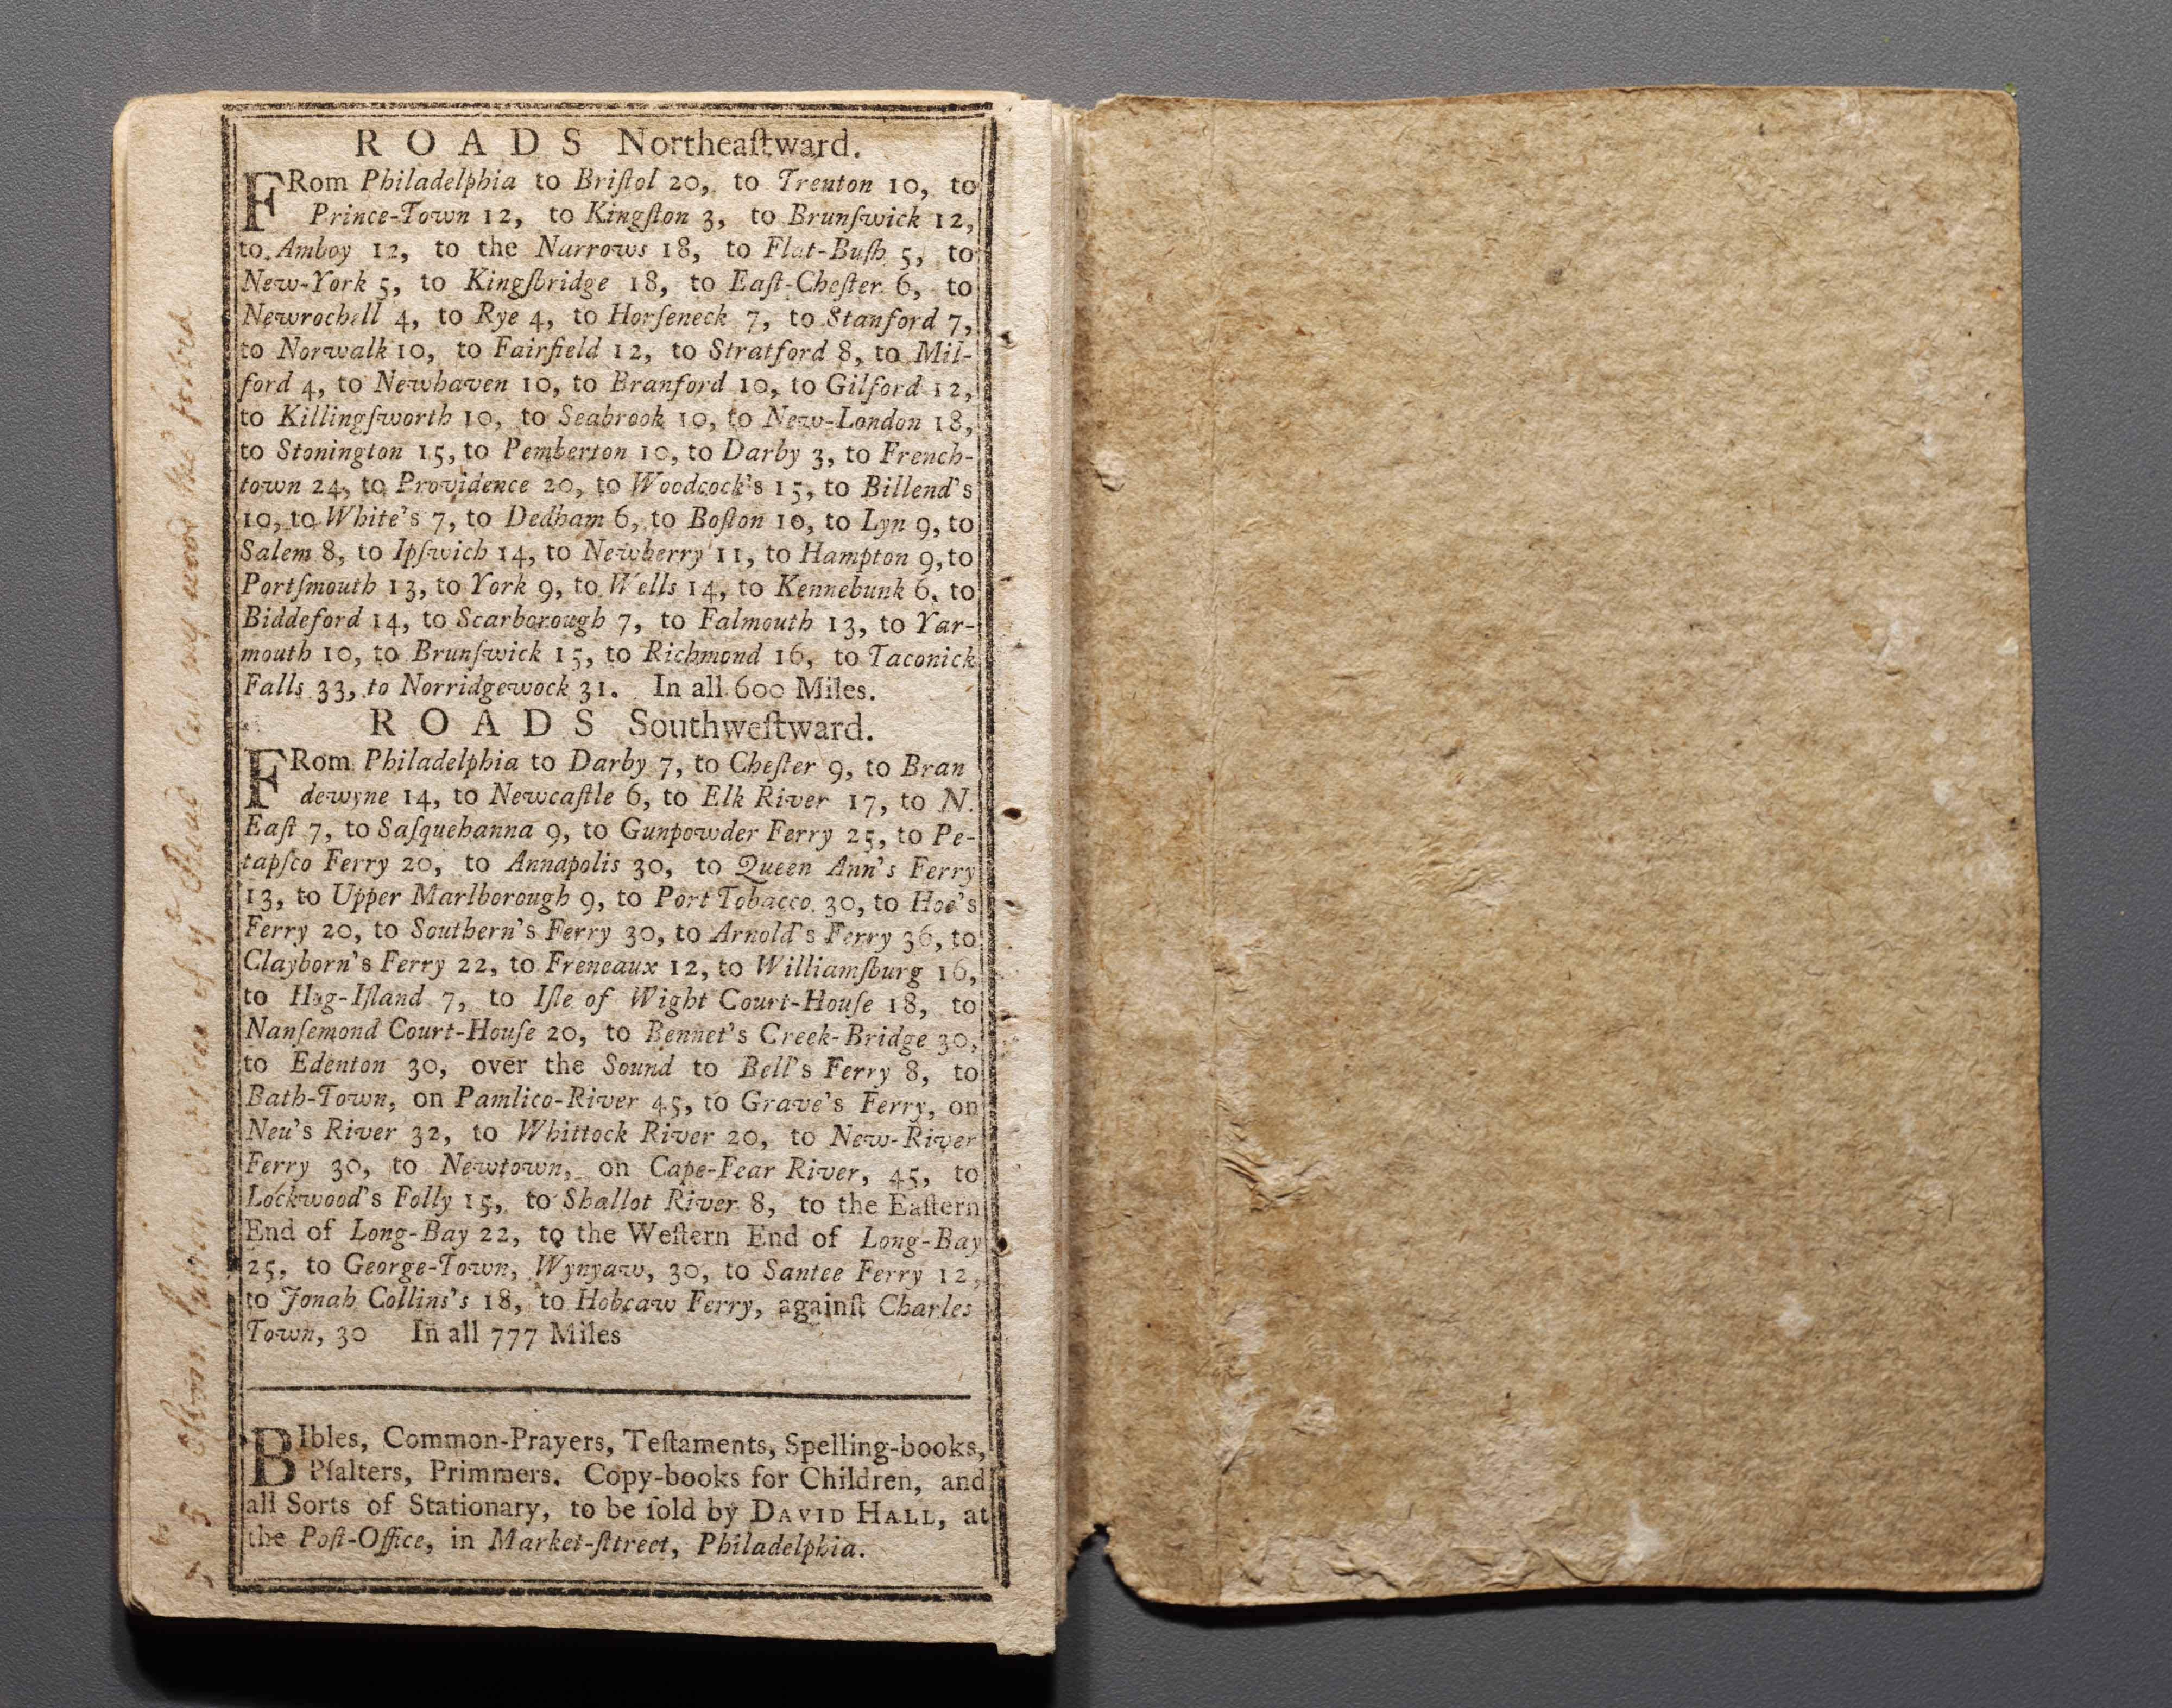 ROADS Northeaſtward.
FRom Philadelphia to Briſtol 20, to Trenton 10, to
Prince-Town 12, to Kingſton 3, to Brunſwick 12,
to Amboy 12, to the Narrows 18, to Flat-Buſh 5, to
New-York 5, to Kingſbridge 18, to Eaſt-Cheſter 6, to
Newrochell 4, to Rye 4, to Horſeneck 7, to Stanford 7,
to Norwalk 10, to Fairfield 12, to Stratford 8, to Mil-
ford 4, to Newhaven 10, to Branford 10, to Gilford 12,
to Killingſworth 10, to Seabrook 10, to New-London 18,
to Stonington 15, to Pemberton 10, to Darby 3, to French-
town 24, to Providence 20, to Woodcock's 15, to Billend's
10, to White's 7, to Dedham 6, to Boſton 10, to Lyn 9, to
Salem 8, to Ipſwich 14, to Newberry 11, to Hampton 9, to
Portſmouth 13, to York 9, to Wells 14, to Kennebunk 6, to
Biddeford 14, to Scarborough 7, to Falmouth 13, to Yar-
mouth 10, to Brunſwick 15, to Richmond 16, to Taconick
Falls 33, to Norridgewock 31. In all 600 Miles.
ROADS Southweſtward.
FRom Philadelphia to Darby 7, to Cheſter 9, to Bran
dewyne 14, to Newcaſtle 6, to Elk River 17, to N.
Eaſt 7, to Saſquehanna 9, to Gunpowder Ferry 25, to Pe-
tapſco Ferry 20, to Annapolis 30, to Queen Ann's Ferry
13, to Upper Marlborough 9, to Port Tobacco 30, to Hoe's
Ferry 20, to Southern's Ferry 30, to Arnold's Ferry 36, to
Clayborn's Ferry 22, to Freneaux 12, to Williamſburg 16,
to Hog-Iſland 7, to Iſle of Wight Court-Houſe 18, to
Nanſemond Court-Houſe 20, to Bennet's Creek-Bridge 30,
to Edenton 30, over the Sound to Bell's Ferry 8, to
Bath-Town, on Pamlico-River 45, to Grave's Ferry, on
Neu's River 32, to Whittock River 20, to New-River
Ferry 30, to Newtown, on Cape-Fear River, 45, to
Lockwood's Folly 15, to Shallot River 8, to the Eaſtern
End of Long-Bay 22, to the Weſtern End of Long-Bay
25, to George-Town, Wynyaw, 30, to Santee Ferry 12,
to Jonah Collins's 18, to Hobcaw Ferry, againſt Charles
Town, 30 In all 777 Miles
BIbles, Common-Prayers, Teſtaments, Spelling-books,
Pſalters, Primmers, Copy-books for Children, and
all Sorts of Stationary, to be ſold by DAVID HALL, at
the Poſt-Office, in Market-ſtreet, Philadelphia.